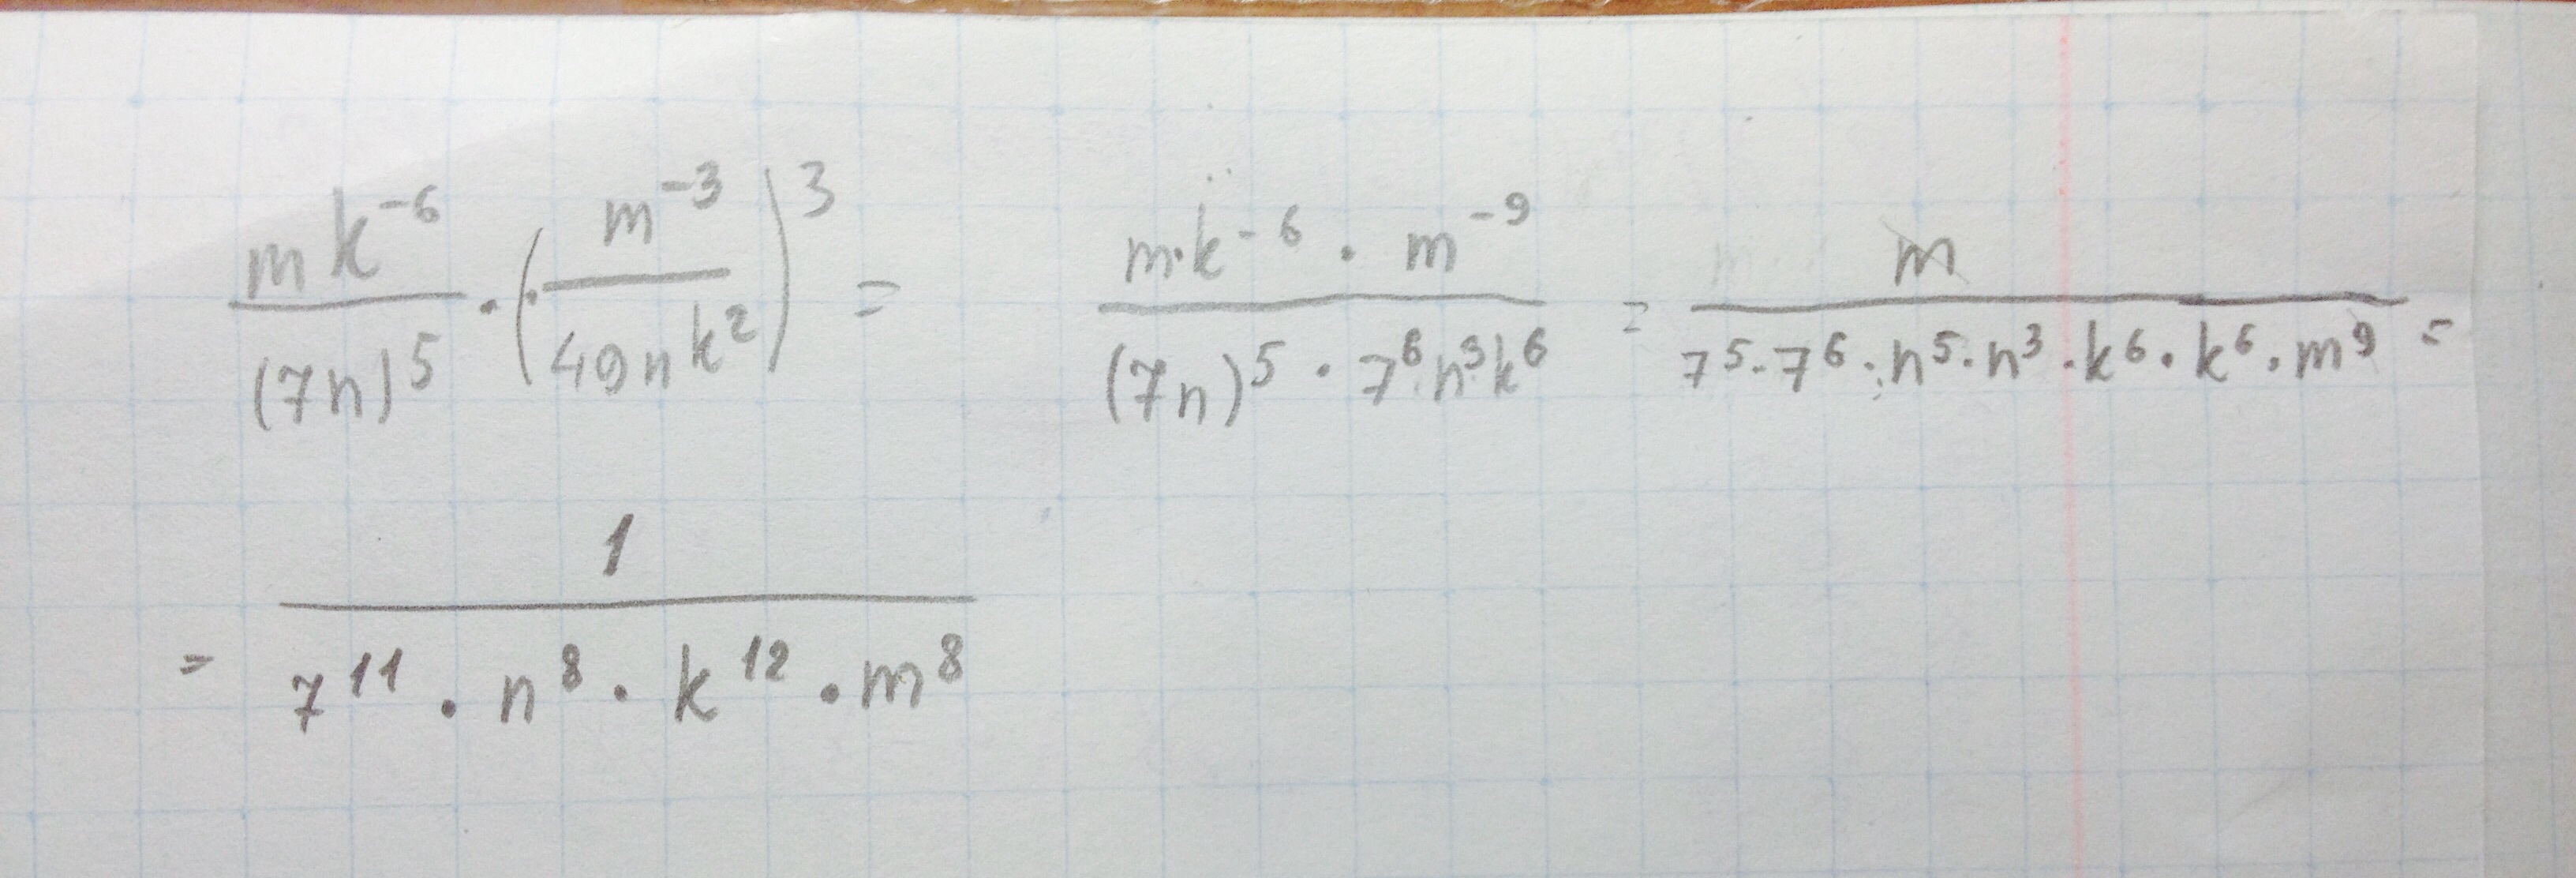 mk⁻⁶/(7n)⁵ · (m⁻³/49nk²)³ = m·k⁻⁶ · m⁻⁹/(7n)⁵ · 7⁶·n³k⁶ = m/7⁵·7⁶·n⁵·n³·k⁶·k⁶·m⁹ =
= 1/7¹¹ · n⁸ · k¹² · m⁸